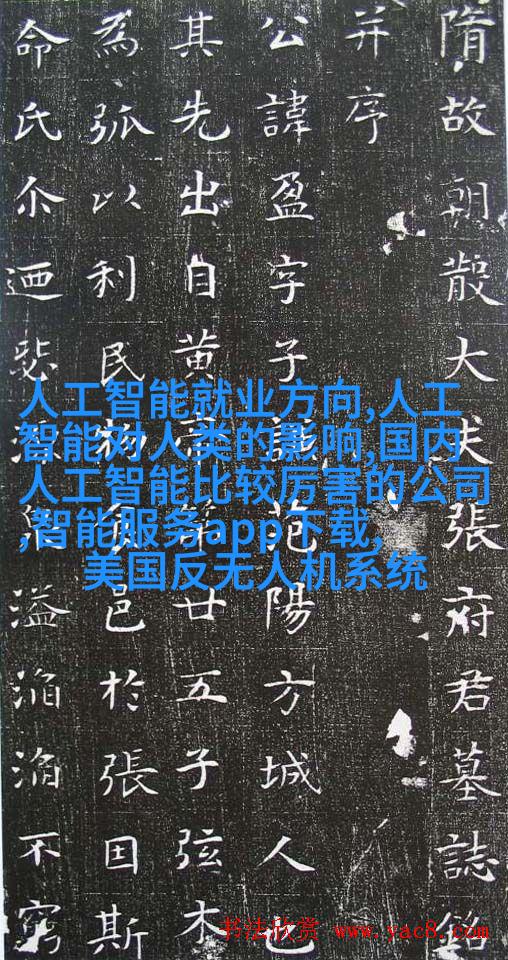 隋故朝散大夫張府君墓誌銘
并序
公諱盈字子范陽方城人也
其先出自黄帝第廿五子弦木
為弧以利民物食邑於張因斯
命氏尒迺源溢滔滔不窮
人工智能就业方向,人工
智能对人类的影响,国内
人工智能比较厉害的公司
,智能服务app下载,
美国反无人机系统
书法欣赏 www.yac8.com